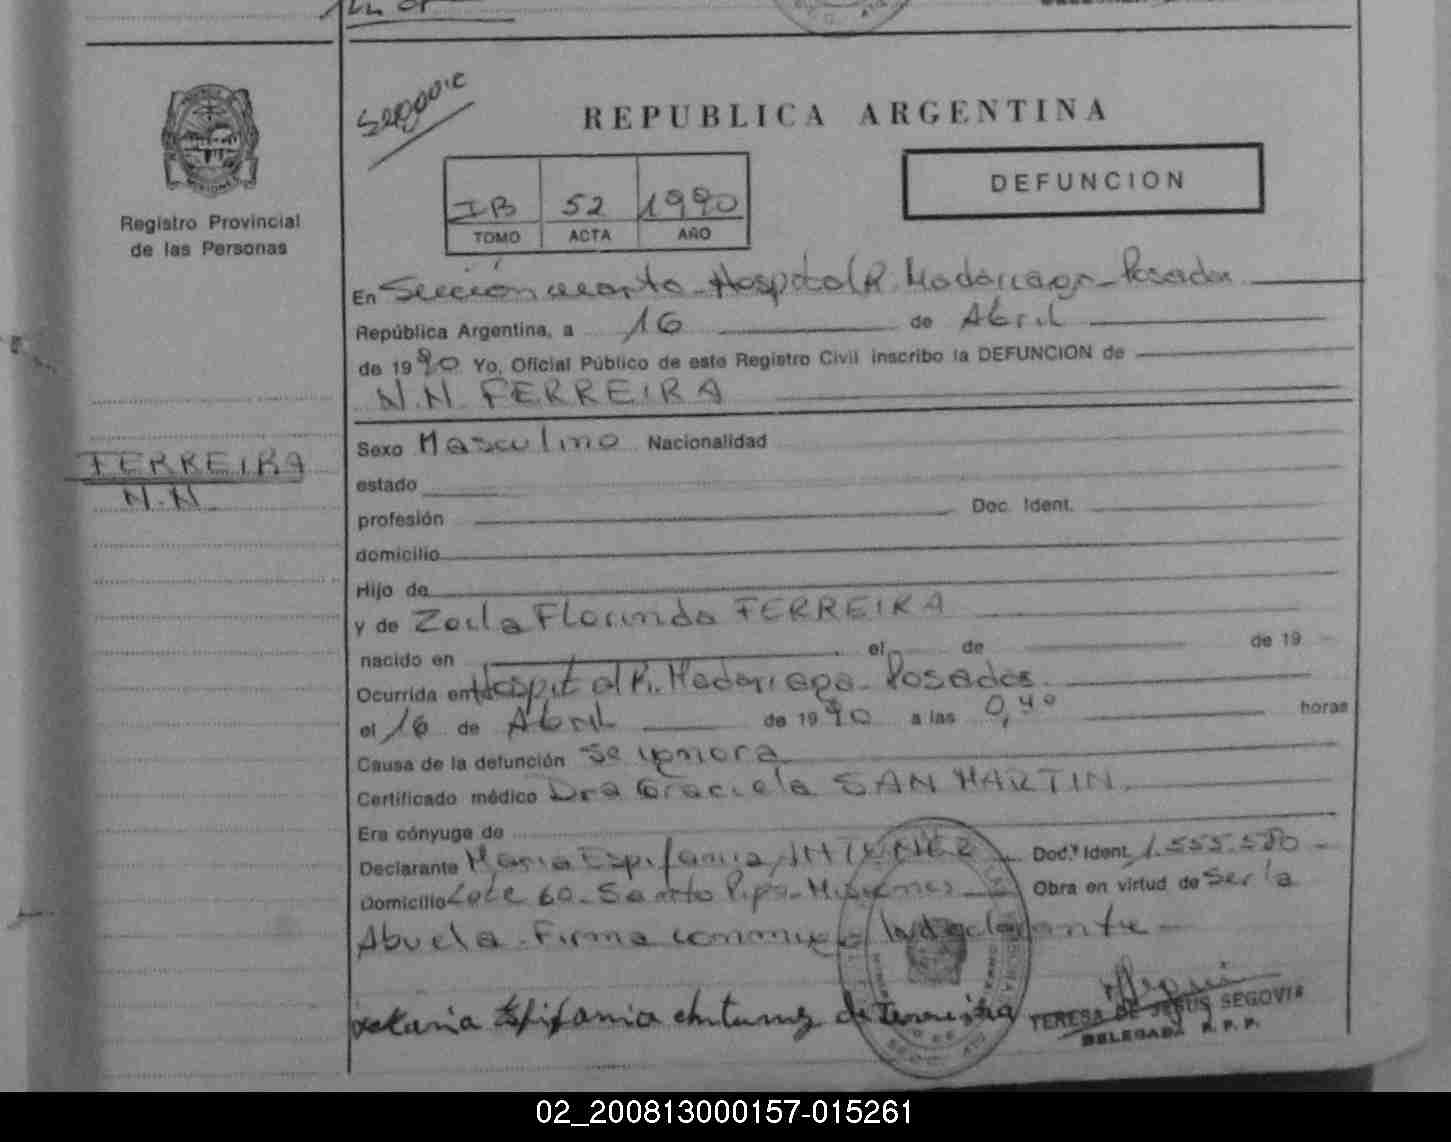 Segovia
REPUBLICA ARGENTINA
IB 52 1990
TOMO ACTA AÑO
DEFUNCION
Registro Provincial
de las Personas
FERREIRA
N.N.
En Sección cuarta - Hospital R. Madariaga - Posadas
República Argentina, a 16 de Abril
de 1990 Yo, Oficial Público de este Registro Civil inscribo la DEFUNCION de
N.N. FERREIRA
Sexo Masculino Nacionalidad
estado
profesión Doc. Ident.
domicilio
Hijo de
y de Zoila Florinda FERREIRA
nacido en el de de 19
Ocurrida en Hospital R. Madariaga - Posadas
el 16 de Abril de 1990 a las 0,40 horas
Causa de la defunción Se ignora
Certificado médico Dra Graciela SAN MARTIN
Era cónyuge de
Declarante Maria Espifania Doc. Ident. 1.555.580
Domicilio Lote 60 - Santo Pipó - Misiones Obra en virtud de Ser la
Abuela - Firma conmigo la declarante
TERESA DE JESUS SEGOVIA
DELEGADA R. P. P.
02_200813000157-015261